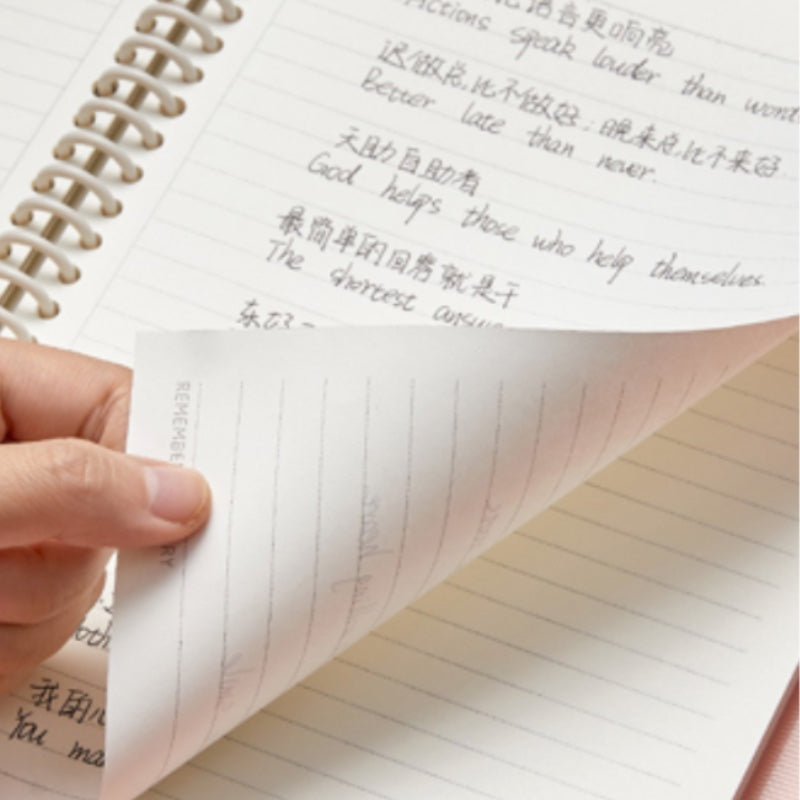 语言更响亮
Actions speak louder than word
迟做总比不做好；晚来总比不来好
Better late than never.
天助自助者
God helps those who help themselves.
最简单的回答就是干
The shortest answe
东好
REMEMBE
RY
oth
我的心
You ma